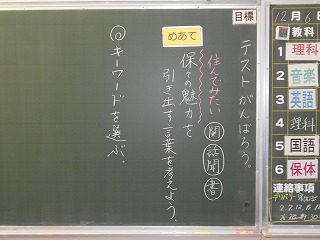 目標
テストがんばろう。
めあて
住んでみたい
保々の魅力を
引き出す言葉を考えよう。
◎キーワードを選ぶ.
12月6日
教科
1 理科
2 音楽
3 英語
4 理科
5 国語
6 保体
連絡事項